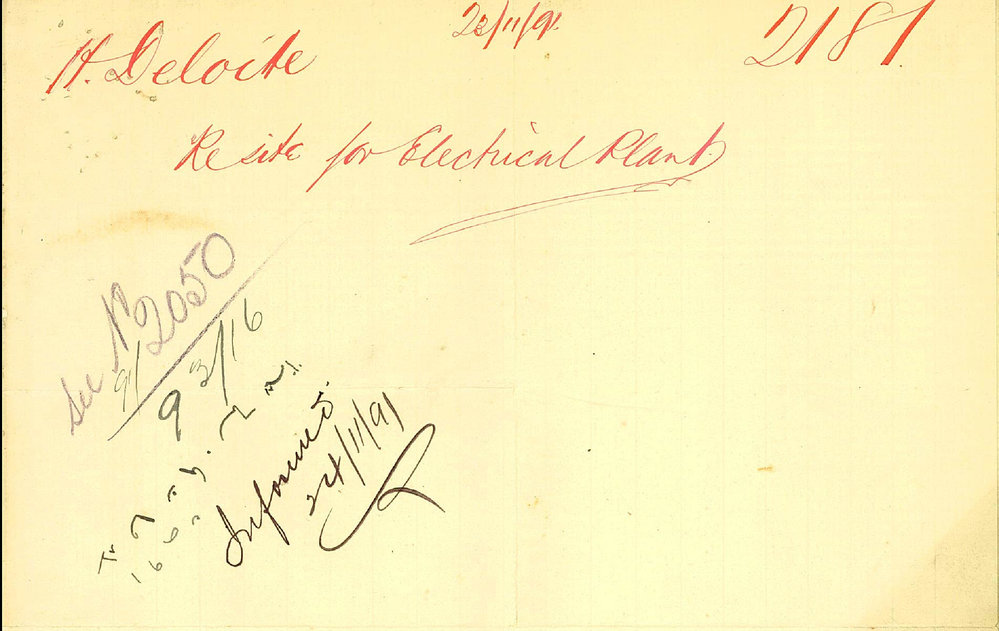 23/11/91
H. Deloite
2187
Re site for Electrical Plant
See No 2050
91
93/16
9
Informed
24/11/91